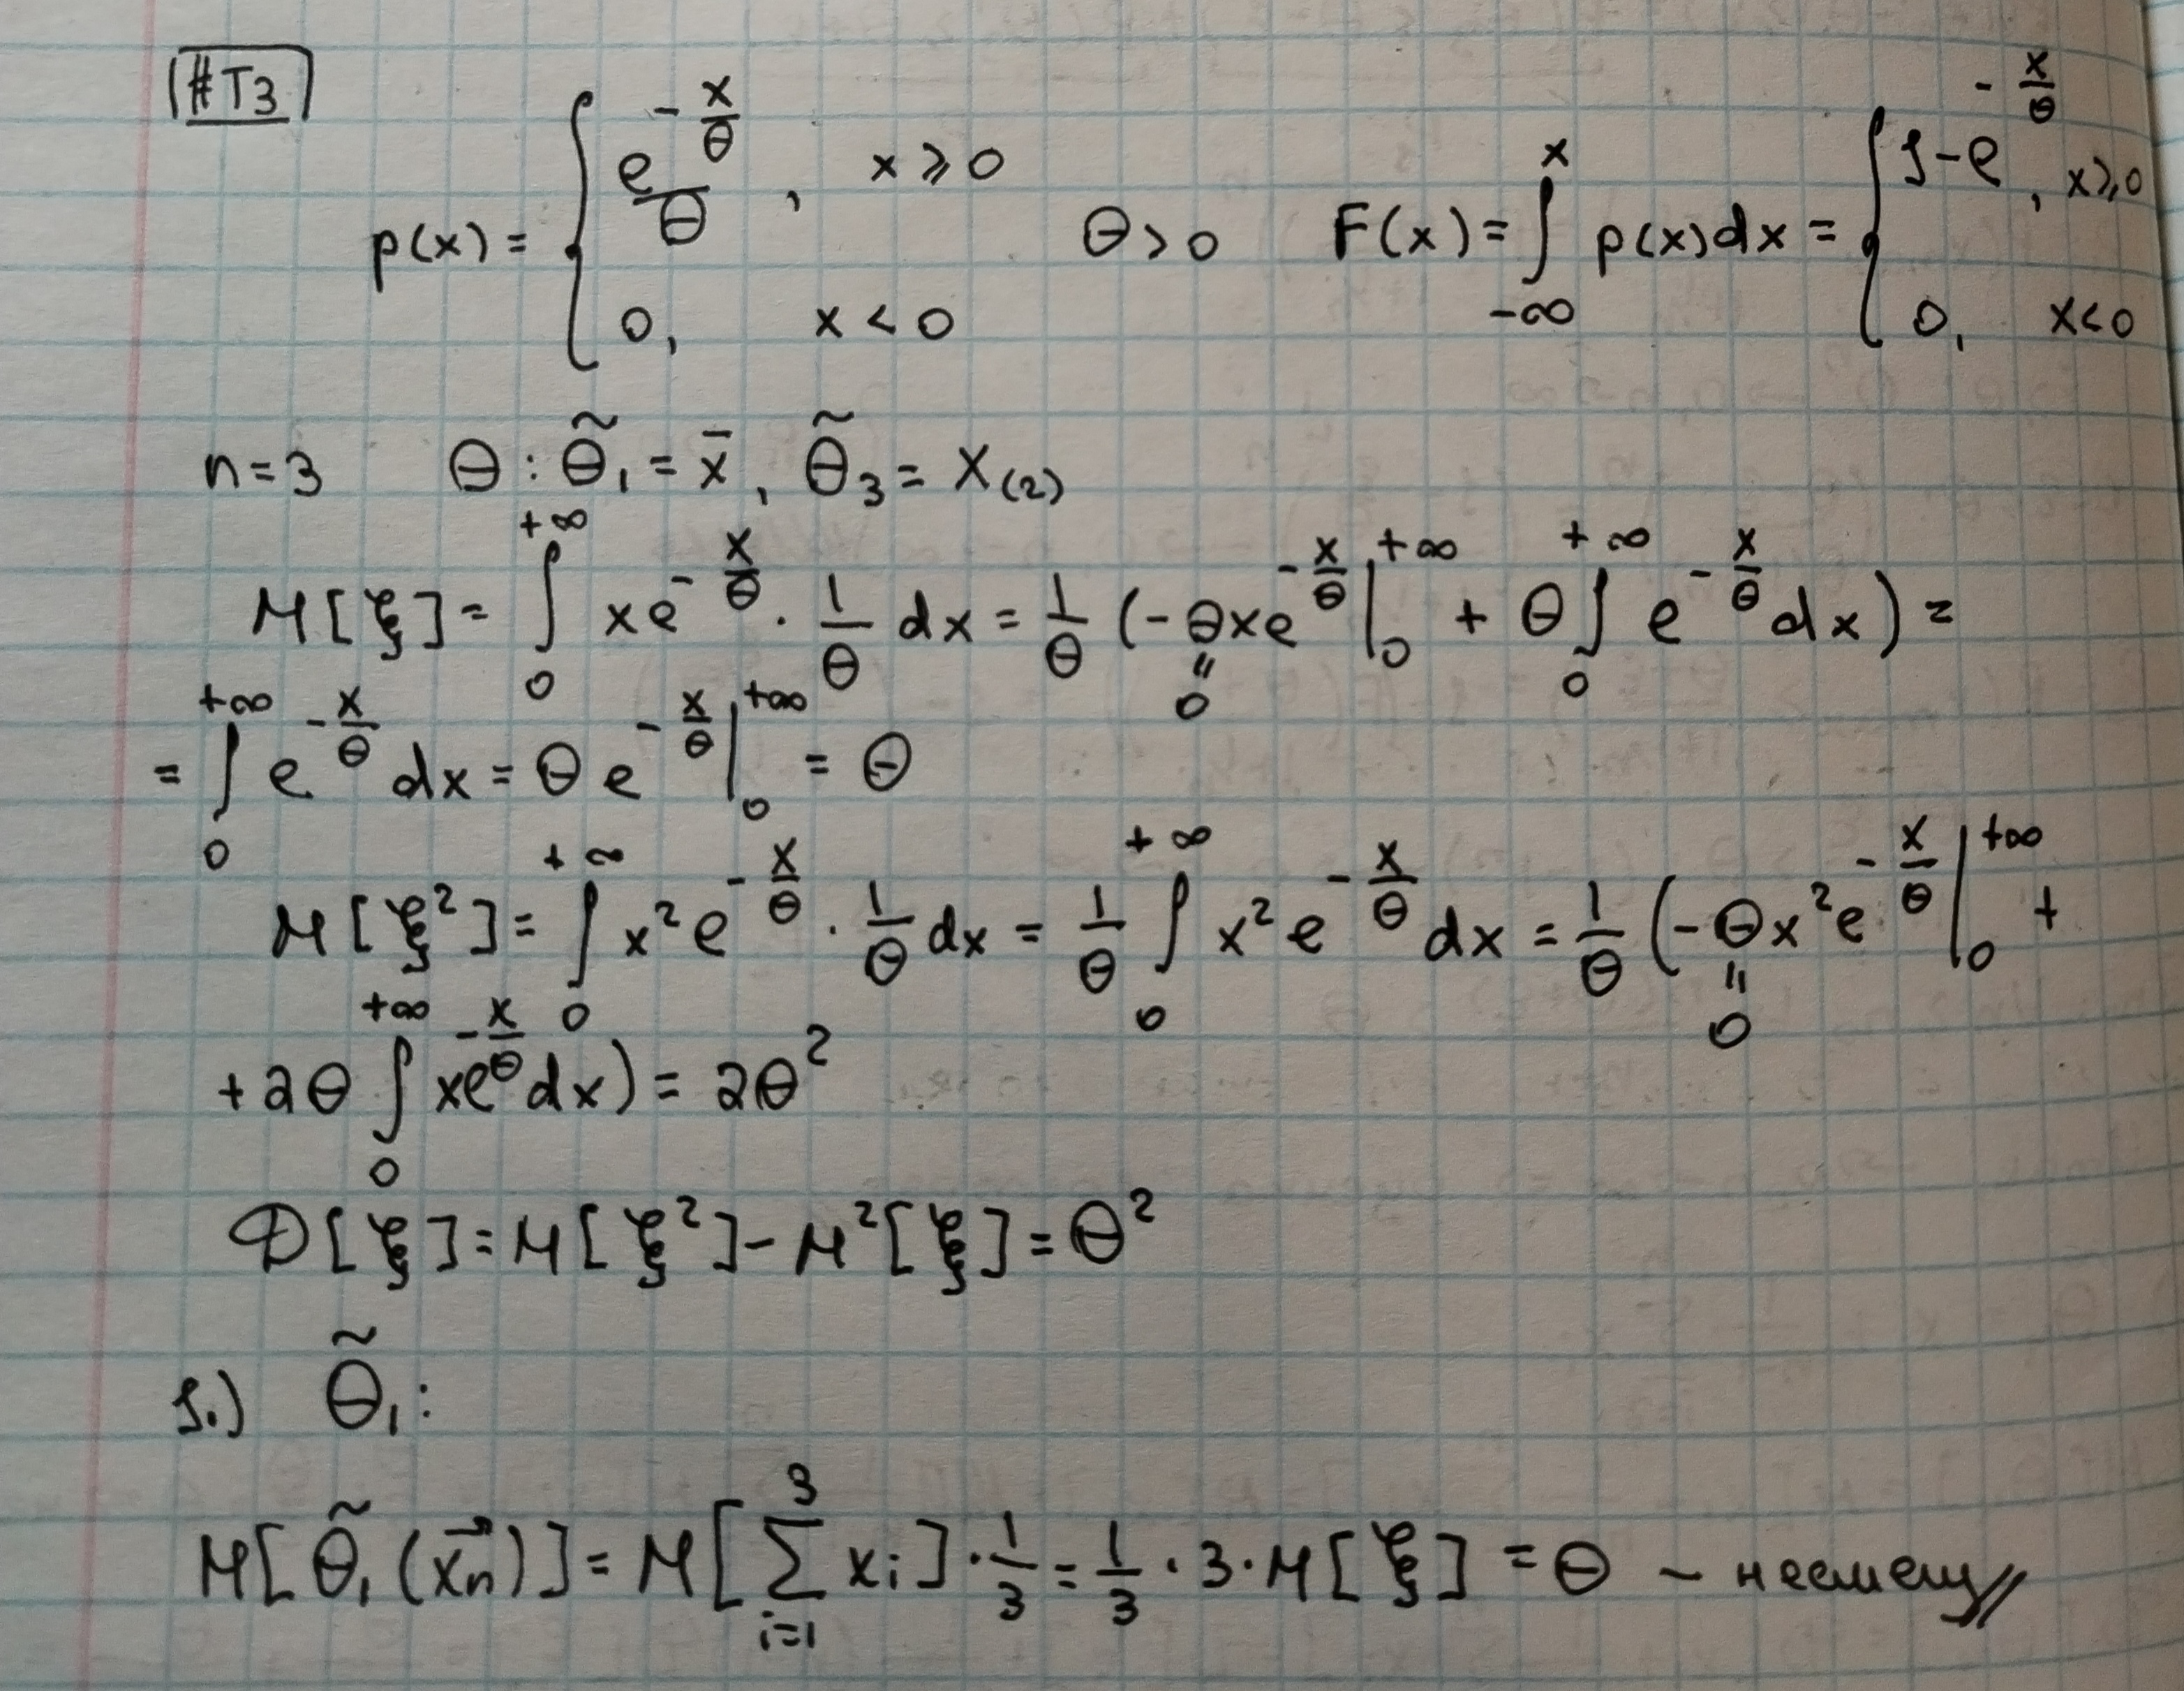 #T3
p(x) = { e^{-x/θ}/θ, x ⩾ 0; 0, x < 0   θ > 0   F(x) = ∫_{-∞}^{x} p(x)dx = { 1-e^{-x/θ}, x⩾0; 0, x<0
n=3   θ : θ̃₁ = x̄, θ̃₃ = x₍₂₎
M[ξ] = ∫_0^{+∞} xe^{-x/θ} · 1/θ dx = 1/θ (-θxe^{-x/θ}|_0^{+∞} + θ∫_0^{+∞} e^{-x/θ}dx) =
"0
= ∫_0^{+∞} e^{-x/θ} dx = θ e^{-x/θ}|_0^{+∞} = θ
M[ξ²] = ∫_0^{+∞} x²e^{-x/θ} · 1/θ dx = 1/θ ∫_0^{+∞} x²e^{-x/θ} dx = 1/θ (-θx²e^{-x/θ}|_0^{+∞} +
"0
+2θ ∫_0^{+∞} xe^{-x/θ}dx) = 2θ²
D[ξ] = M[ξ²] - M²[ξ] = θ²
1.) θ̃₁:
M[θ̃₁(x⃗n)] = M[∑_{i=1}^{3} xi] · 1/3 = 1/3 · 3 · M[ξ] = θ – несмещ//